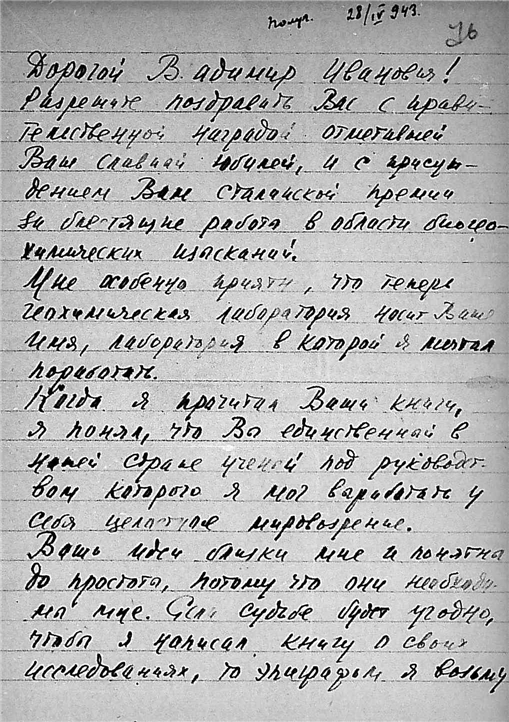 получ. 28/IV 943.
76
Дорогой Владимир Иванович!
Разрешите поздравить Вас с прави-
тельственной наградой отметившей
Ваш славный юбилей, и с присуж-
дением Вам сталинской премии
за блестящие работы в области биогео-
химических изысканий.
Мне особенно приятно, что теперь
геохимическая лаборатория носит Ваше
имя, лаборатория в которой я мечтал
поработать.
Когда я прочитал Ваши книги,
я понял, что Вы единственный в
нашей стране ученый под руководст-
вом которого я мог выработать у
себя целостное мировозрение.
Ваши идеи близки мне и понятны
до простоты, потому что они необходи-
мы мне. Если судьбе будет угодно,
чтобы я написал книгу о своих
исследованиях, то эпиграфом я возьму